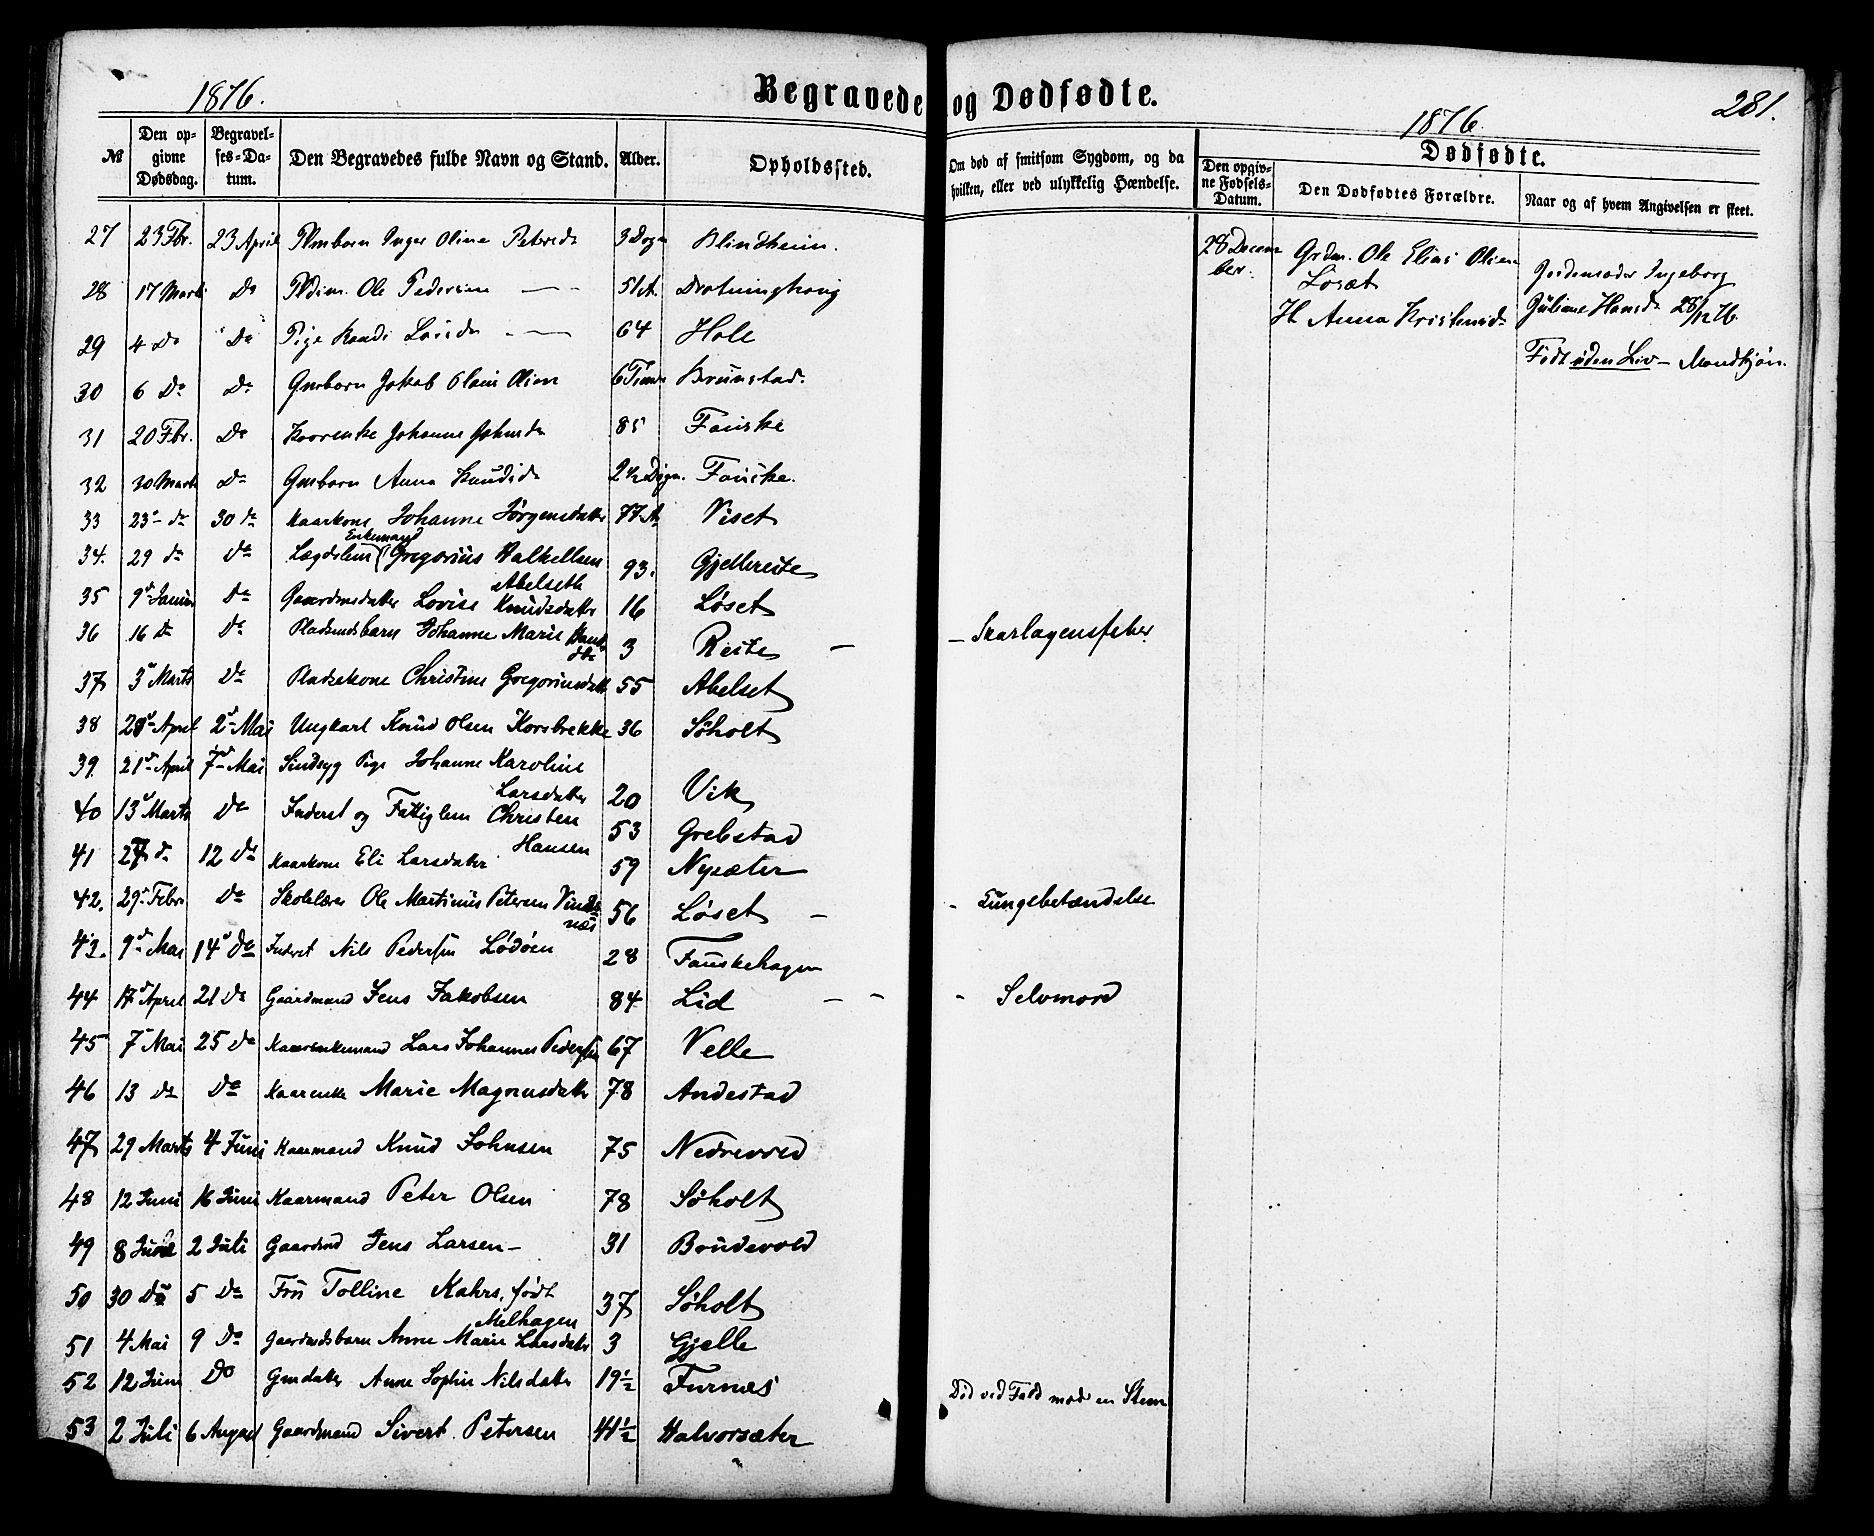 1876.
Begravede og Dødfødte.
1876
281.
№
Den opgivne Dødsdag.
Begravelses-Datum.
Den Begravedes fulde Navn og Stand.
Alder.
Opholdssted.
Om død af smitsom Sygdom, og da hvilken, eller ved ulykkelig Hændelse.
Dødfødte.
Den opgivne Fødsels-Datum.
Den Dødfødtes Forældre.
Naar og af hvem Angivelsen er skeet.
27 23 Fbr. 23 April Inger Oline Petersd 3 Døgn Blindheim.
28 17 Marts Do Ole Pedersen 51 A.
29 4 Do Do Pige 64 Hole
30 6 Do Do Gmbarn Jakob Olsen 6 Timer Brunstad.
31 20 Fbr. Do Kaarenke Johanne Johnsdr 85 Fauske
32 30 Marts Do Gmbarn Anna Knudsdr 2½ Døgn. Fauske.
33 23 do 30 do Kaarkone Johanne Jørgensdatter 77 A Viset
Enkemand
34. 29 do do Lægdslem (Gregorius 93. Gjelle
Abelseth
35 9 Januar do Gaardmsdatter Lovise Knudsdatter 16 Løset
36 16 Do Do Pladsmdsbarn Johanne Marie 3 Reite – – Skarlagensfeber
37 3 Marts Do Pladsekone Christine Gregoriusdatt 55 Abelset
38 28 April 2 Mai Ungkarl Knud Olsen Korsbrekke 36 Søholt
39. 21 April 7 Mai Sindsyg Pige Johanne Karoline
Larsdatter 20 Vik
40 13 Marts Do Inderst og Fattiglem Christen
Hansen 53 Grebstad
41 27 do 12 Do Kaarkone Eli Larsdatter 59 Nysæter
42. 29 Febr Do Skolelærer Ole Martinus Petersen
næs 56 Løset – – Lungebetændelse
43. 9 Mai 14 Do Inderst Nils Pedersen Lødøen 28 Fauskehagen
44 17 April 21 Do Gaardmand Jens Jakobsen 84 Lid – – – Selvmord
45 7 Mai 25 Do Kaarenkemand Lars Johannes Pedersen 67 Velle
46 13 Do Do Kaarenke Marie Magnusdatter 78 Andestad
47 29 Marts 4 Juni Kaarmand Knud Johnsen 75 Nedrevold
48 12 Juni 16 Juni Kaarmand Peter Olsen 78 Søholt
49 8 Juni 2 Juli Gaardmd Jens Larsen – 31 Brudevold
50 30 Do 5 Do Fru Tolline Kahrs, født
Melhagen 37 Søholt
51 4 Mai 9 Do Gaardmdsbarn Anne Marie Larsdatter 3 Gjelle
52 12 Juni Do Gmdatter Anne Sophie Nilsdatter 19½ Furnes Død ved Fald mod en Steen
53 2 Juli 6 August Gaardmand Sivert Petersen 44½ Halvorsæter
28 December. Grdm. Ole Elias Olsen
Løsæt
H. Anna Kristensd
Jordemoder Ingeborg
Juliane Hansd 28/12 76.
Født uden Liv – Mandkjøn.